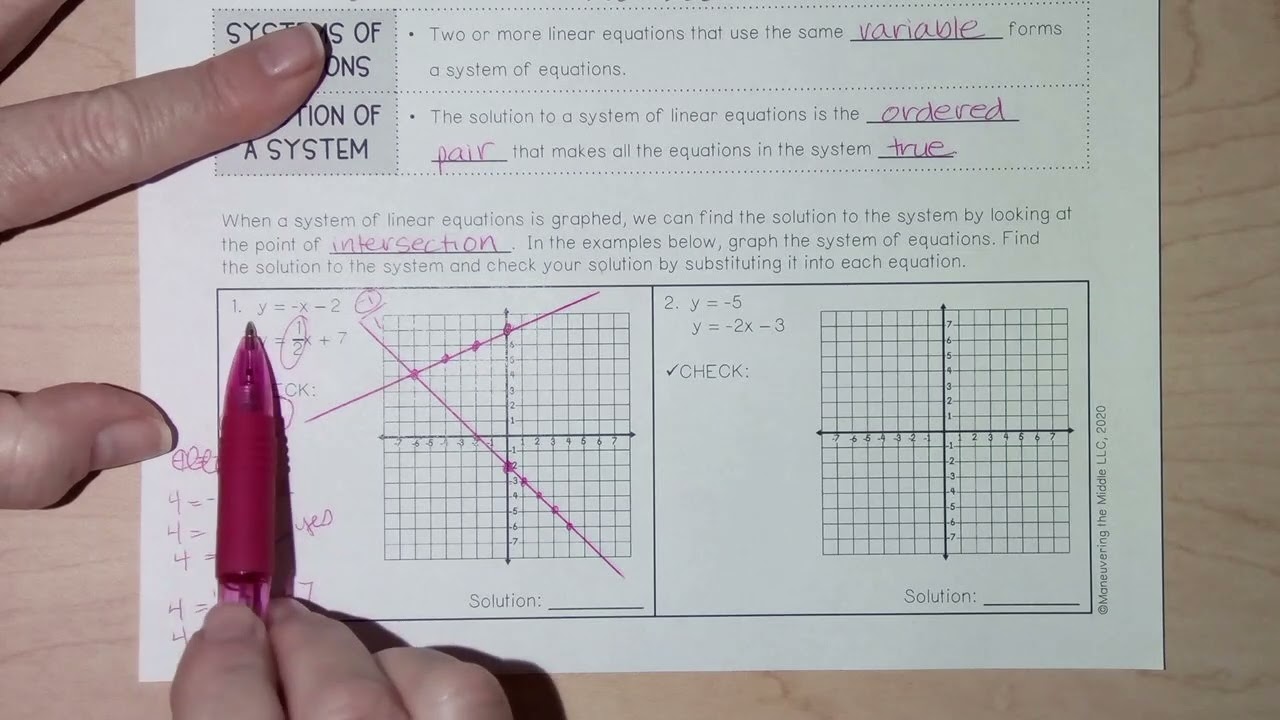 SYSTEMS OF
ONS
• Two or more linear equations that use the same variable forms
a system of equations.
TION OF
A SYSTEM
• The solution to a system of linear equations is the ordered
pair that makes all the equations in the system true.
When a system of linear equations is graphed, we can find the solution to the system by looking at
the point of intersection. In the examples below, graph the system of equations. Find
the solution to the system and check your solution by substituting it into each equation.
1. y = -x - 2
= 1/2x + 7
CK:
4 = -
4 = yes
4 =
4 = 7
4
Solution:
2. y = -5
y = -2x - 3
✓CHECK:
Solution:
©Maneuvering the Middle LLC, 2020